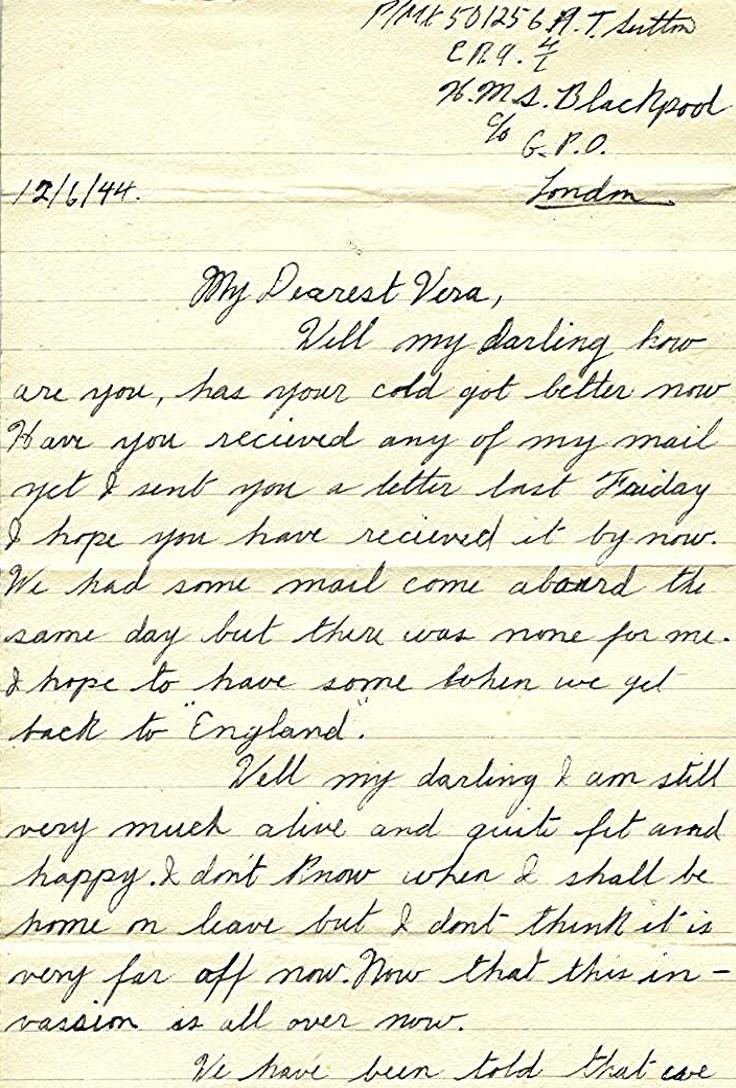 P/MX 501256 A. T. Sutton
E.R.A. 4/L
H.M.S. Blackpool
c/o
G.P.O.
London.
12/6/44.
My Dearest Vera,
Well my darling how
are you, has your cold got better now
Have you recieved any of my mail
yet I sent you a letter last Friday
I hope you have recieved it by now.
We had some mail come aboard the
same day but there was none for me.
I hope to have some when we get
back to "England".
Well my darling I am still
very much alive and quite fit and
happy. I don't know when I shall be
home on leave but I dont think it is
very far off now. Now that this in-
vassion is all over now.
We have been told that we